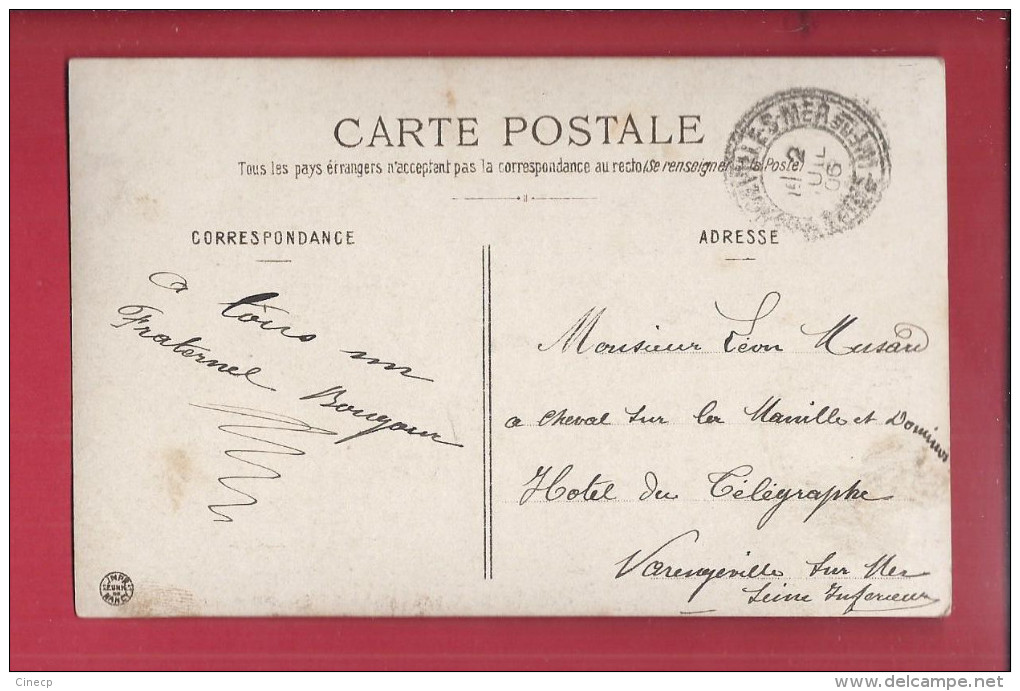 CARTE POSTALE
Tous les pays étrangers n'acceptant pas la correspondance au recto (Se renseigner à la Poste)
CORRESPONDANCE
a tous un
Fraternel Bongour
ADRESSE
Monsieur Léon Musard
a cheval sur la Manille et Dominos
Hotel du Télégraphe
Varengeville sur Mer
Seine Inferieure
2
JUIL
06
IMPR.
REUNIES
NANCY
Cinecp
delcampe.net